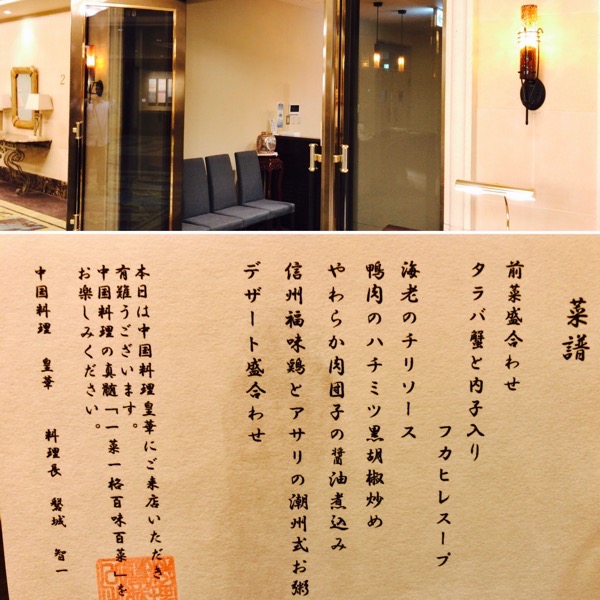 2
菜譜
前菜盛合わせ
タラバ蟹と内子入り
フカヒレスープ
海老のチリソース
鴨肉のハチミツ黒胡椒炒め
やわらか肉団子の醤油煮込み
信州福味鶏とアサリの潮州式お粥
デザート盛合わせ
本日は中国料理皇華にご来店いただき
有難うございます。
中国料理の真髄「一菜一格百味百菜」を
お楽しみください。
中国料理 皇華
料理長 蟹城 智一